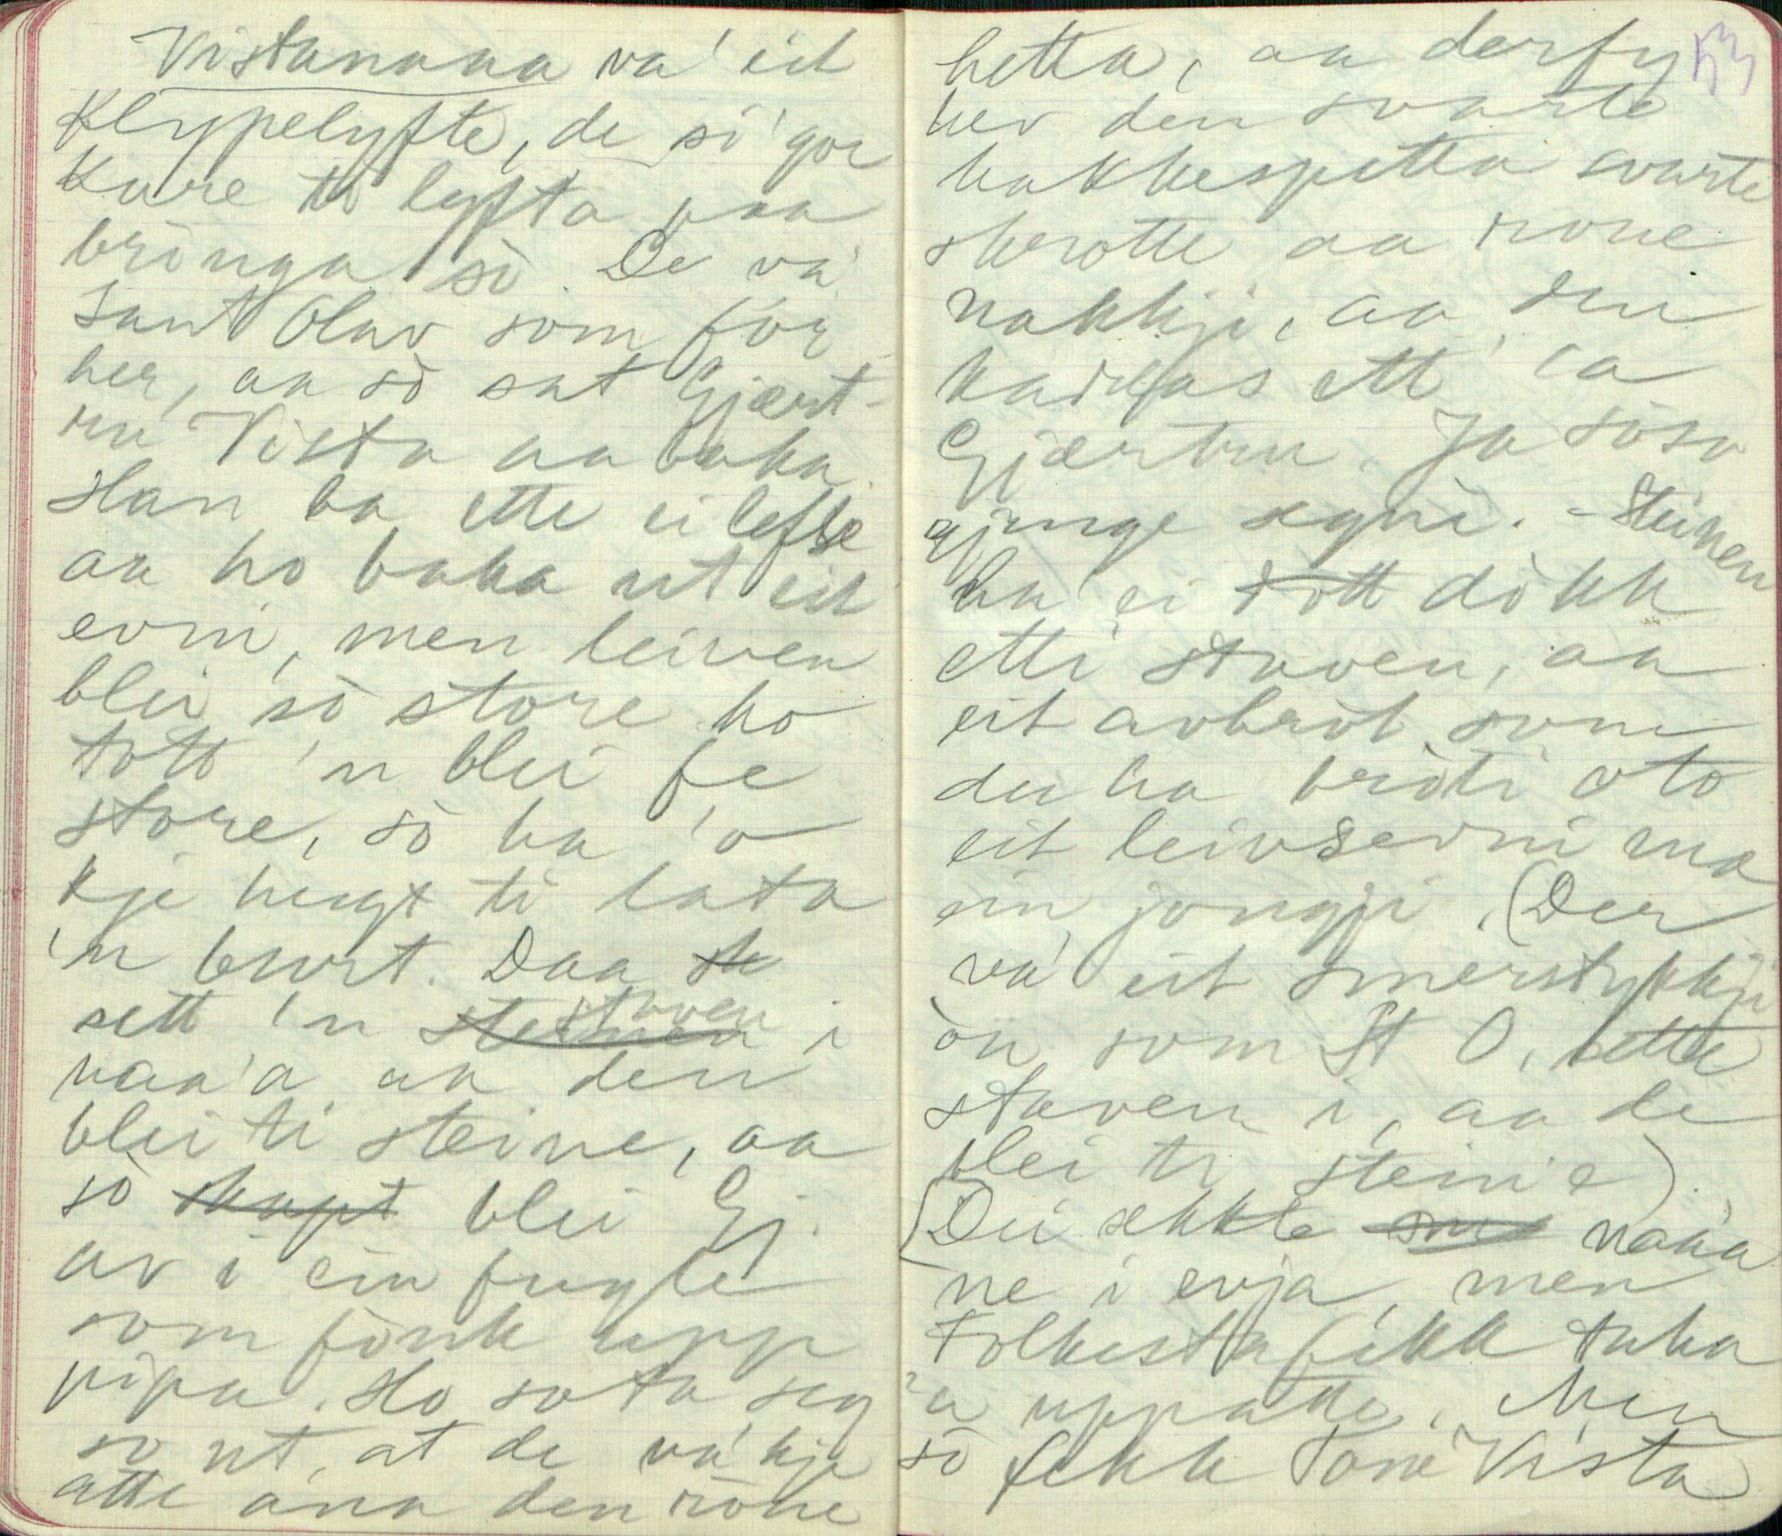 Vistanaaa va' eit
klypelyfte, de si' gor
kare ti lyfta paa
bringa si. De va'
Sant Olav som fór
her, aa sò sat Gjært-
ru Vista aa baka.
Han ba ette ei lefse
aa ho baka ut eit
evni, men leiven
blei sò store ho
tott 'n blei fe
store, sò ha 'o
kje hugt ti lata
'n burt. Daa sk
sett 'n steinen staven i
naa'a aa den
blei ti steine, aa
sò skapt blei Gj.
av i ein fugle
som fònk upp
pipa. Ho sota seg
so ut, at de va' kje
atte ana den röue
53
hetta, aa derfy
her den svarte
hakkespetta svarte
skrotte aa roue
nakkji, aa den
kaddas ett ca
Gjærtru. Ja sòso
gjenge segni. - Steinen
ha' ei tott dòkk
etti staven, aa
eit avbròt som
du ha bròti oto
eit leivsevni mæ
ein jongji. (Der
va' eit smerstykkji
òn som St O. sette
staven i, aa de
blei ti steine).
(Dei ækkte sme naaa
ne i evja, men
Folkesta fikk taka
'a uppatte. Men
sò fekk Tone Vista